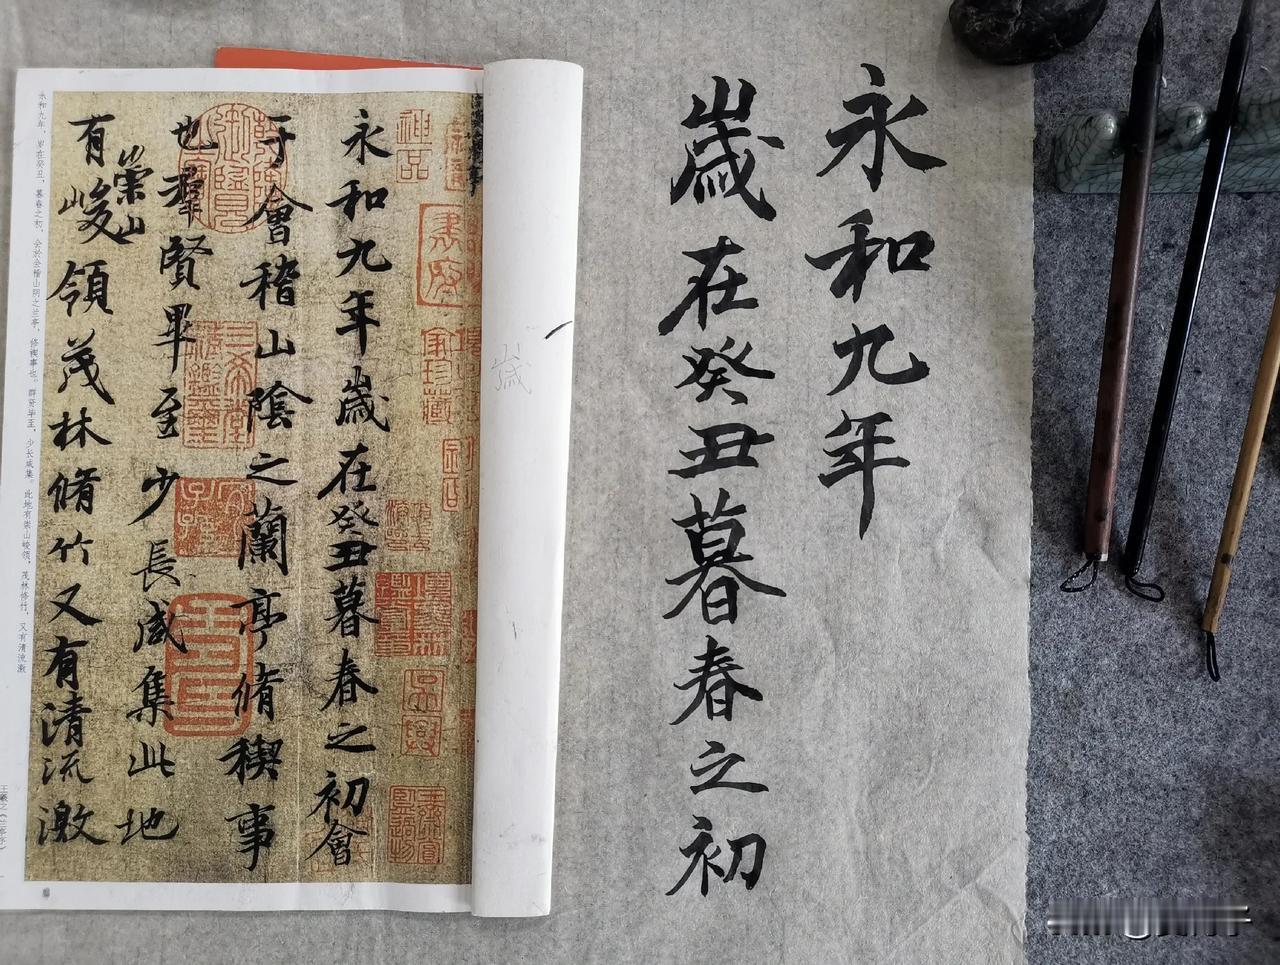 永和九年
歲在癸丑暮春之初
永和九年歲在癸丑暮春之初會
于會稽山陰之蘭亭脩稧事
也羣賢畢至少長咸集此地
有崇山峻領茂林脩竹又有清流激
永和九年，岁在癸丑，暮春之初，会於会稽山阴之兰亭，修稧事也。群贤毕至，少长咸集。此地有崇山峻领，茂林修竹，又有清流激
王羲之《兰亭序》
歲